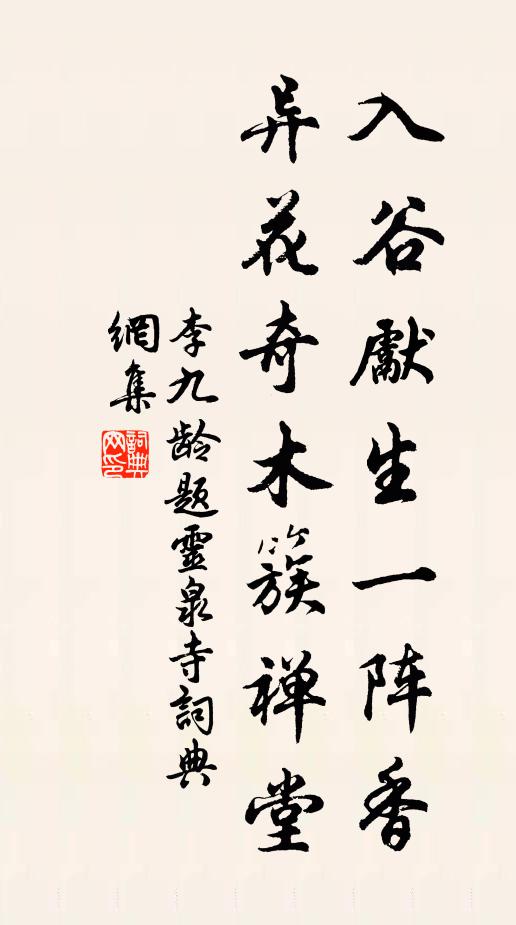 入谷獻生一阵香
异花奇木簇禅堂
李九龄题靈泉寺詞典
網集
詞典
网印